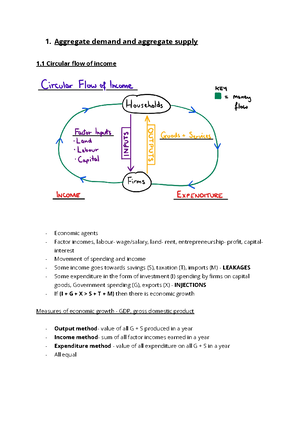 1. Aggregate demand and aggregate supply
1.1 Circular flow of income
Circular Flow of Income
KEY
= money
flow
Households
Factor Inputs
- Land
- Labour
- Capital
INPUTS
OUTPUTS
Goods + Services
Firms
INCOME
EXPENDITURE
- Economic agents
- Factor incomes, labour- wage/salary, land- rent, entrepreneurship- profit, capital-
interest
- Movement of spending and income
- Some income goes towards savings (S), taxation (T), imports (M) - LEAKAGES
- Some expenditure in the form of investment (I) spending by firms on capital
goods, Government spending (G), exports (X) - INJECTIONS
- If (I + G + X > S + T + M) then there is economic growth
Measures of economic growth - GDP, gross domestic product
- Output method- value of all G + S produced in a year
- Income method- sum of all factor incomes earned in a year
- Expenditure method - value of all expenditure on all G + S in a year
- All equal